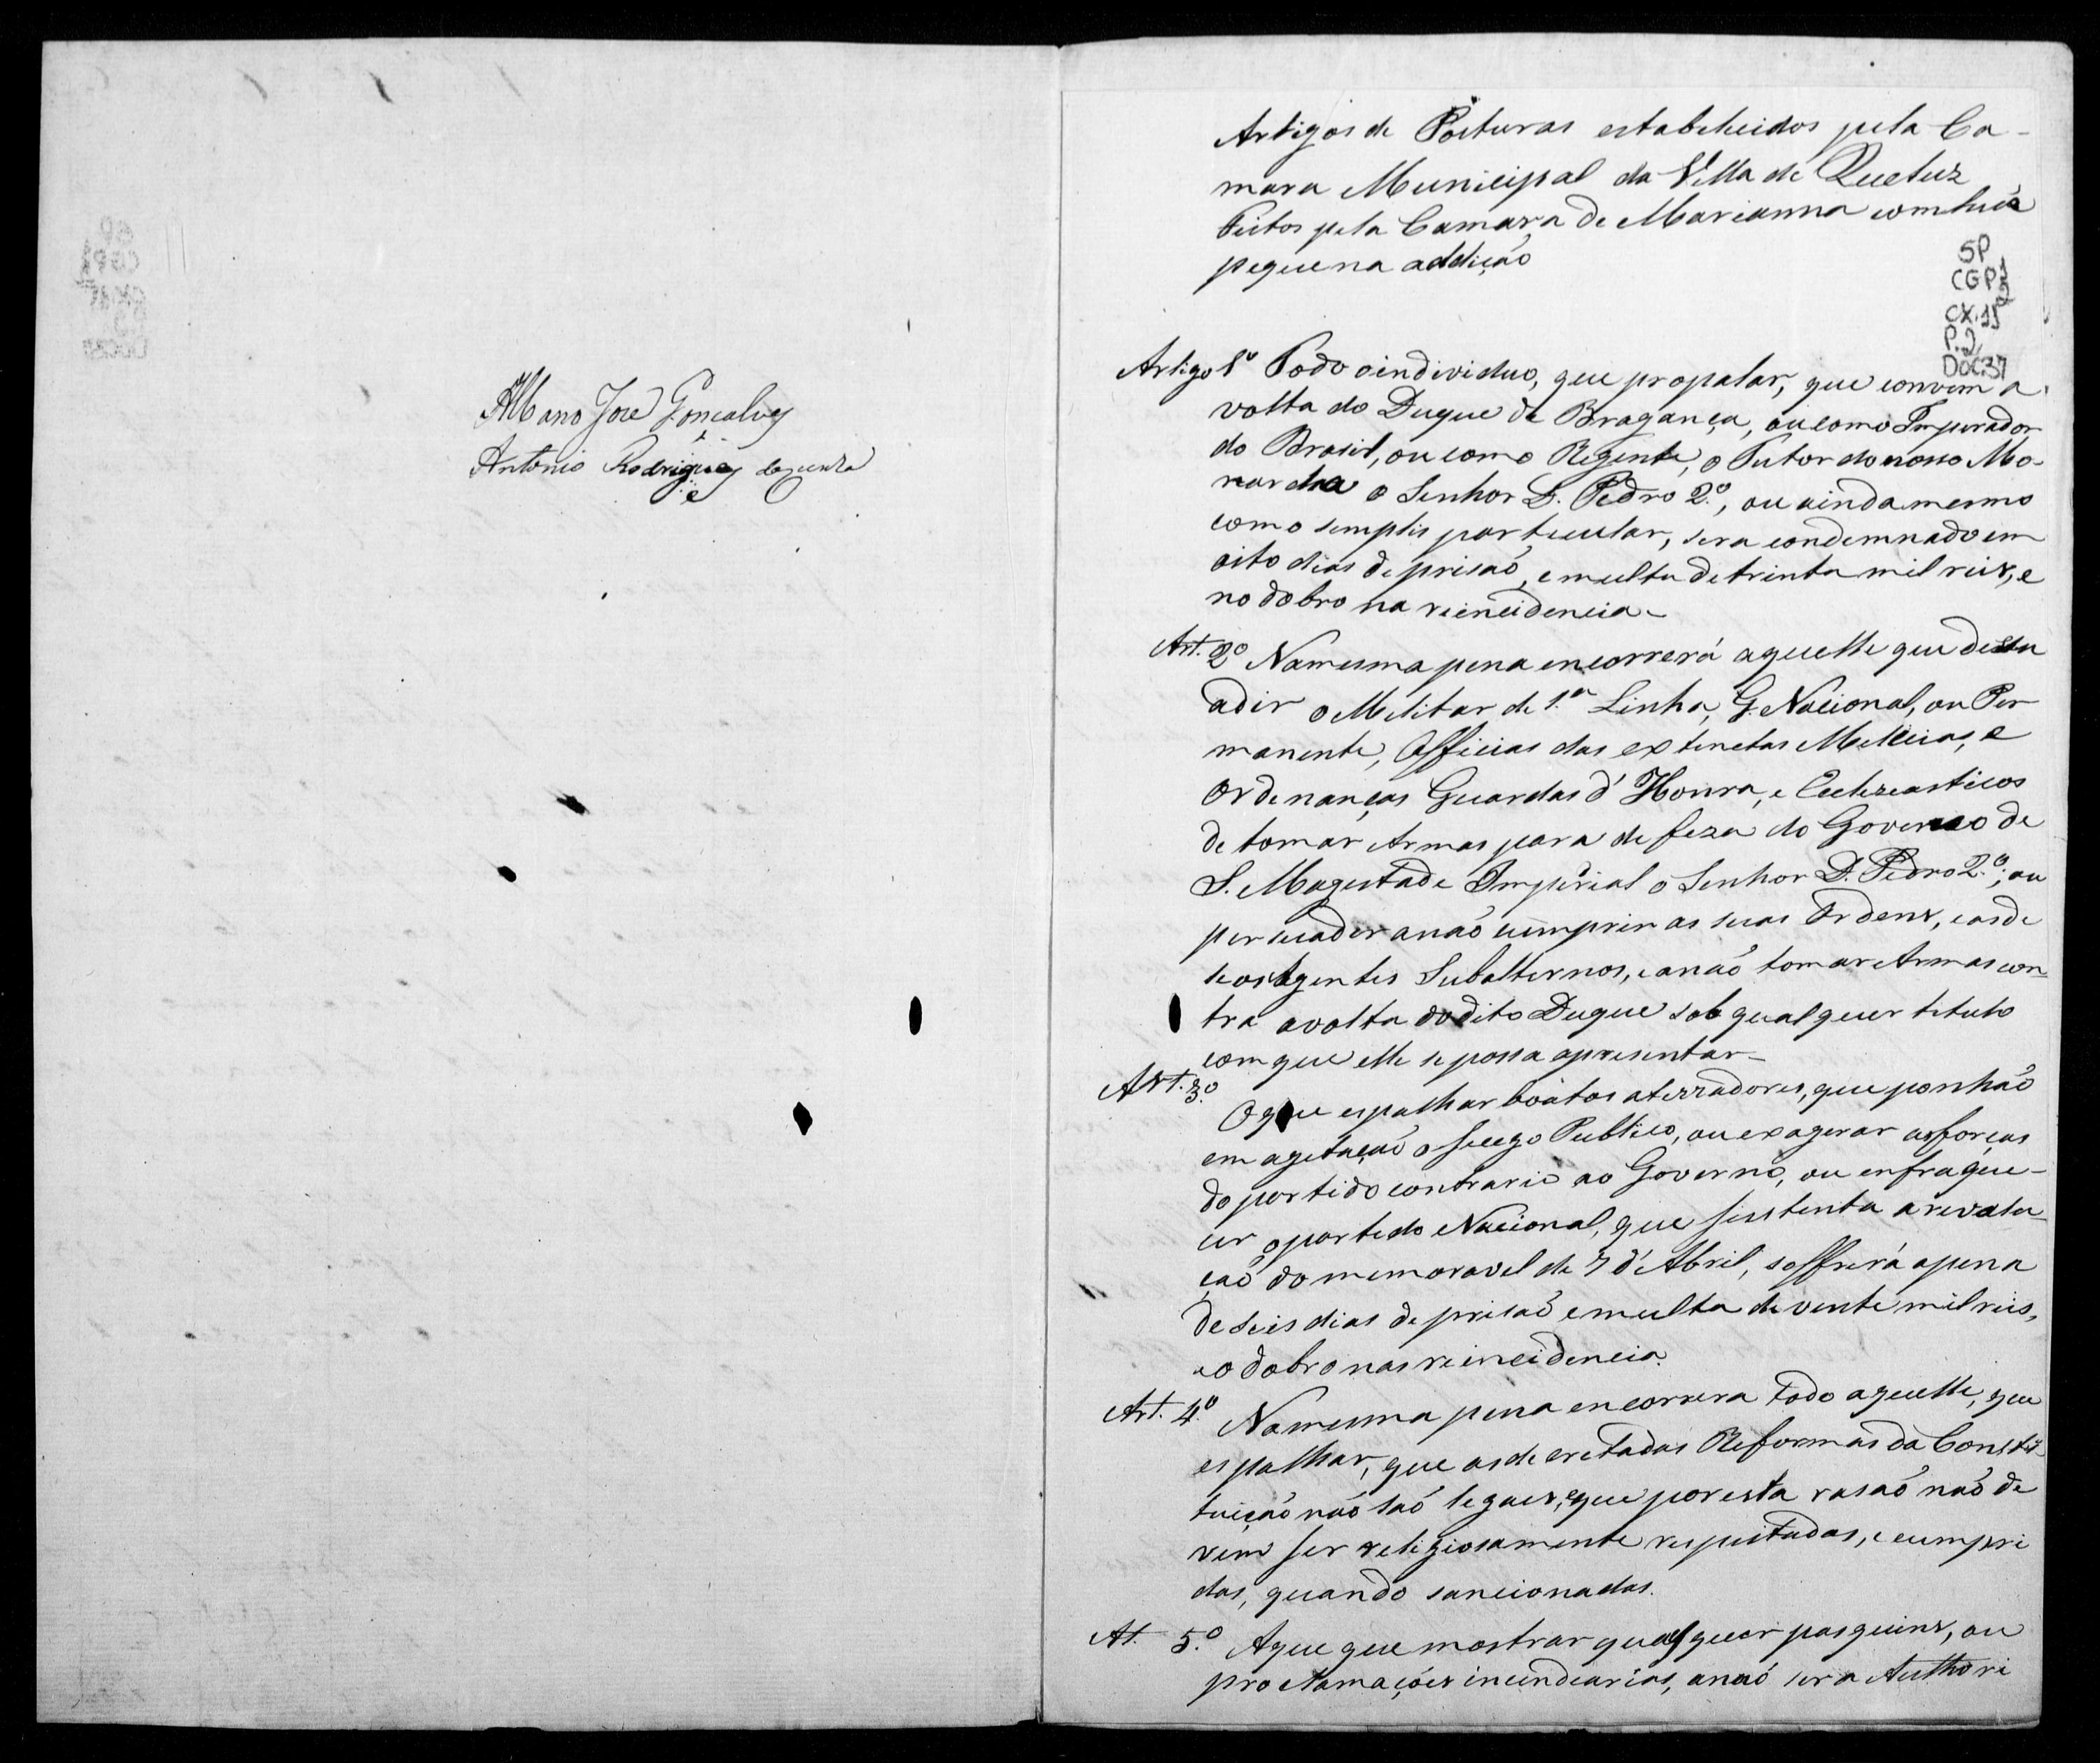 Albano Joze Gonçalves
Antonio Rodrigues
Artigos de Posturas estabeleicidos pela Ca-
mara Municipal da Villa de Queluz
feitos pela Camara de Marianna com huã
pequena addiçaõ
SP
CGP1
CX.15
P.2
DOC37
Artigo 1º Todo o individuo, que propalar, que convem a
volta do Duque de Bragança, ou como Imperador
do Brasil, ou como Regente, o Tutor do nosso Mo-
narcha o Senhor D. Pedro 2.º, ou ainda mesmo
como simples particular, sera condemnado em
oito dias de prisaõ, e multa de trinta mil reis, e
no dobro na reincidencia-
Art. 2º Na mesma pena encorrerá aquelle que dessu
adir o Militar de 1.ª Linha, G. Nacional, ou Per
manente, Officias das extinctas Milicias, e
Ordenanças Guardas d'Honra, e Eclezeasticos
de tomar Armas para defeza do Governo de
S. Magestade Imperial o Senhor D. Pedro 2.º, ou
persuader a naõ cumprir as suas Ordens, e as de
seos Agentes Subalternos, e a naõ tomar Armas con-
tra a volta do dito Duque sob qualquer titulo
com que elle se possa apresentar-
Art. 3.º
O que espalhar boatos aterradores, que ponhaõ
em agitaçaõ o Socego Publico, ou exagerar as forças
do partido contrario ao Governo, ou enfraque-
cer o partido Nacional, que sustenta a revolu-
çaõ do memoravel de 7 d'Abril, soffrerá a pena
de seis dias de prisaõ e multa de vinte mil reis,
e o dobro nas reincidencia.
Art. 4.º Na mesma pena encorrera todo aquelle, que
espalhar, que as decretadas Reformas da Consti-
tuiçaõ naõ saõ legaes, e que por esta rasaõ naõ de
vem ser religiosamente respeitadas, e cumpri
das, quando sancionadas.
At. 5.º Aque que mostrar qualquer pasquins, ou
proclamações incendearias, a naõ ser a Authori